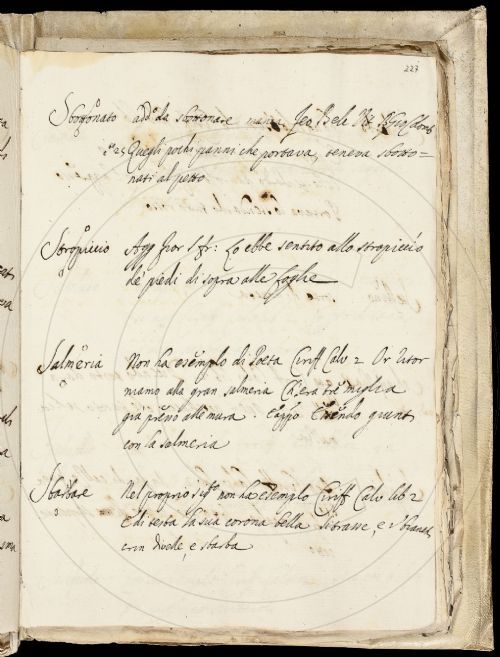 227
Sbottonato add. da sbottonare
Quegli pochi panni che portava, teneva sbotto=
nati al petto
Stropiccio Agg fior S fr: Lo ebbe sentito allo stropiccio
de piedi di sopra alle foglie
Salmeria Non ha esemplo di Poeta Ciriff Calv 2 Or ritor
niamo alla gran salmeria Ch'era tre miglia
già presso alle mura. e appo Essendo giunti
con la salmeria
Sbarbare Nel proprio sigto non ha esemplo Ciriff Calv lib 2
E di testa la sua corona bella si trasse, e i bianchi
crin divelle, e sbarba